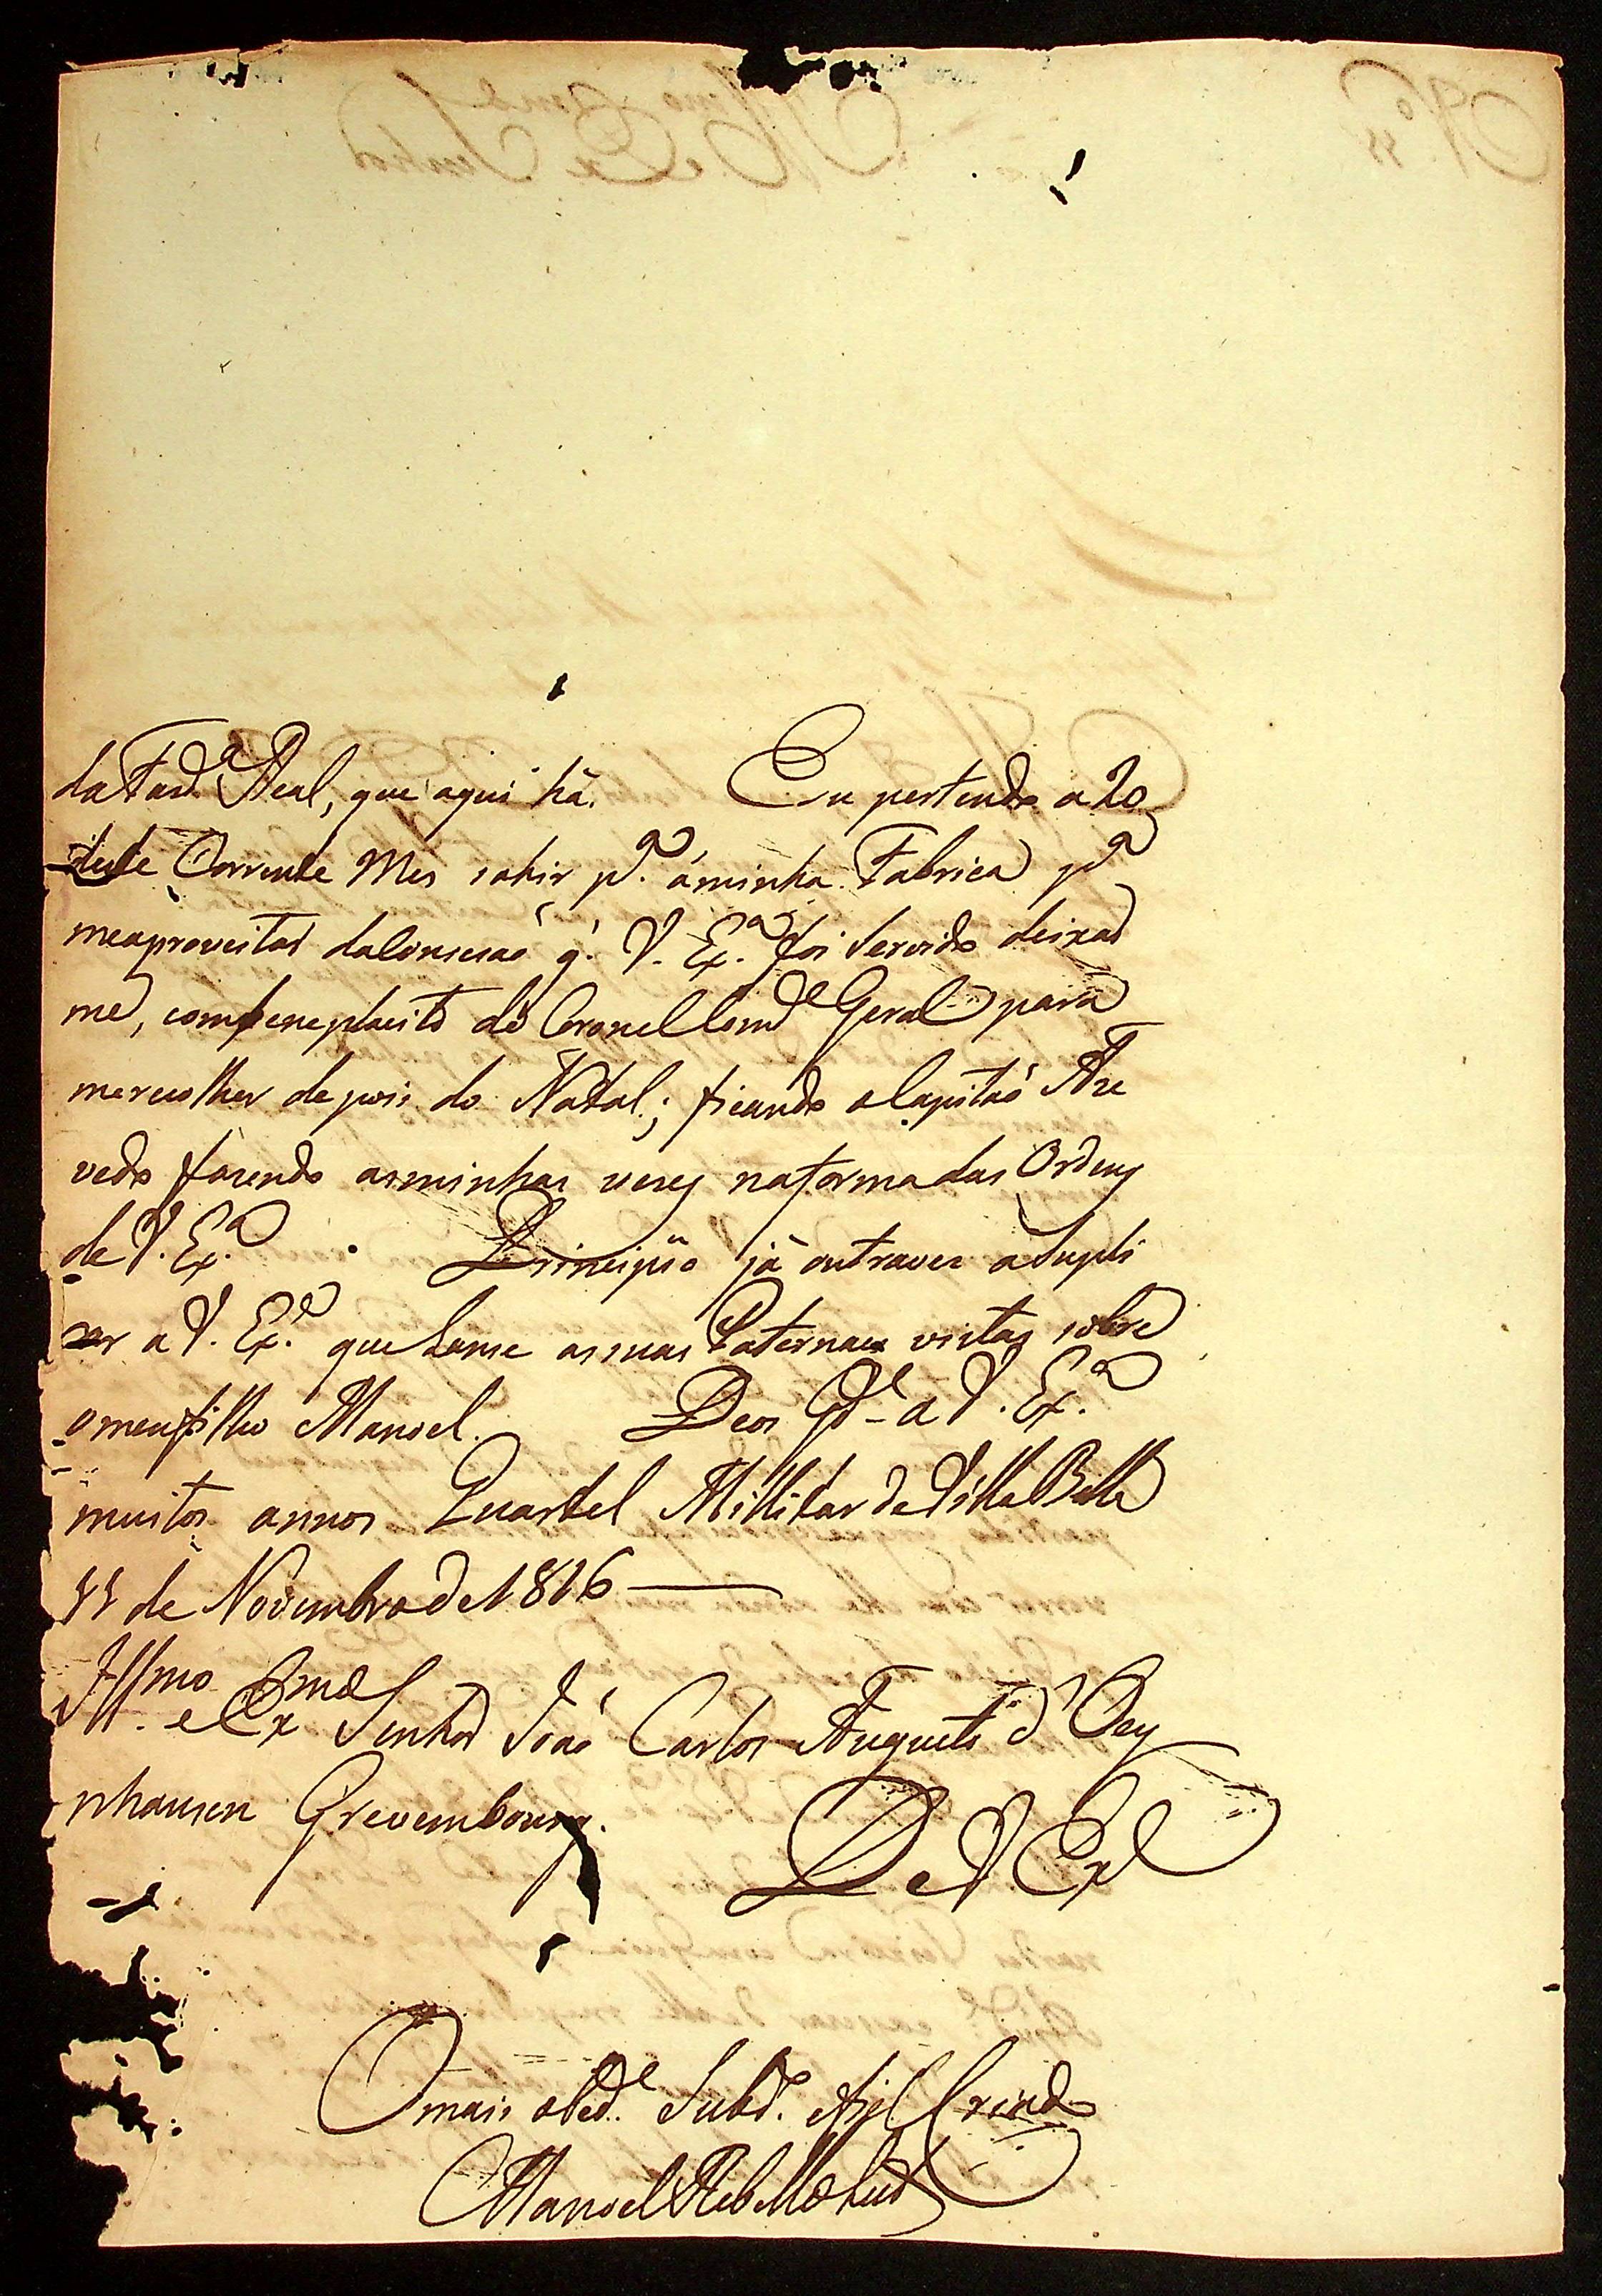 da Fazdª Real, que aqui hâ. Eu pertendo a 20
deste Corrente Mes sahir pª. áminha Fabrica pª
meaproveitar daLonsesaó q̃. V. Exª. foi Servido deixar
me, combeneplacito do Coronel Comde Geral para
merecolher depois do Natal; ficando oCapitaó Aze
vedo fazendo asminhas vezes naforma das Ordens
de V. Exª. Principio já outravez aSupli
car a V. Exª. que Lanse assuas Paternaes vistas sobre
omeufilho Manoel. Deos Gde a V. Exª.
muitos annos Quartel Millitar de Villa Bella
11 de Novembro de 1816
Illmo. e Exmo Senhor Joaó Carlos Augusto d'Oey
nhausen Grevembourg.
De V Exª
O mais obede. Subdo. efiel Criado
Manoel Rebello